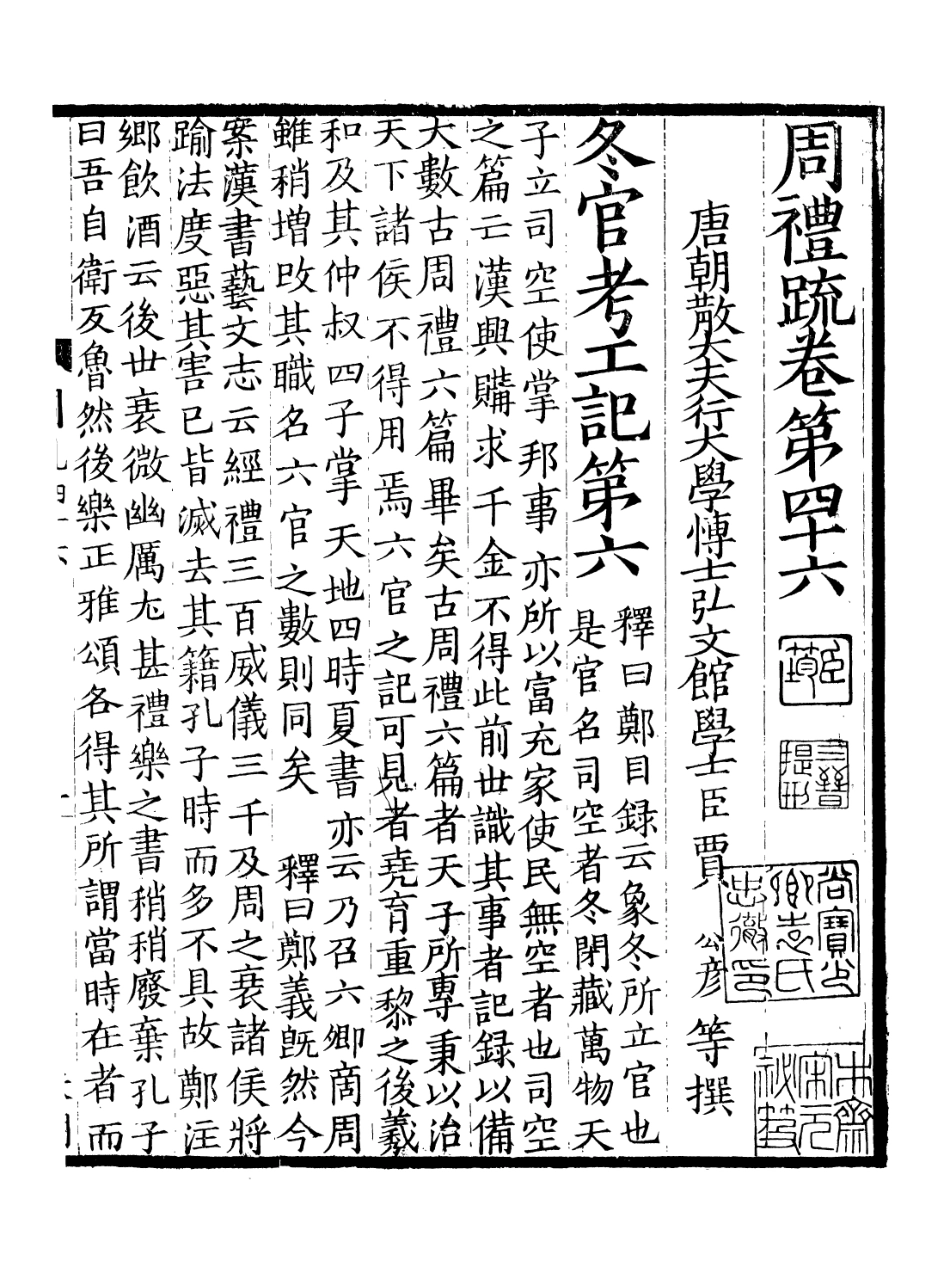 周禮疏卷第四十六
唐朝散大夫行大學博士弘文館學士臣賈公彦等撰
冬官考工記第六
釋曰鄭目録云象冬所立官也
是官名司空者冬閉藏萬物天
子立司空使掌邦事亦所以富充家使民無空者也司空
之篇亡漢興購求千金不得此前世識其事者記録以備
大數古周禮六篇畢矣古周禮六篇者天子所專秉以治
天下諸侯不得用焉六官之記可見者堯育重黎之後羲
和及其仲叔四子掌天地四時夏書亦云乃召六卿商周
雖稍增改其職名六官之數則同矣 釋曰鄭義旣然今
案漢書藝文志云經禮三百威儀三千及周之衰諸侯將
踰法度惡其害已皆滅去其籍孔子時而多不具故鄭注
鄉飲酒云後世衰微幽厲尢甚禮樂之書稍稍廢棄孔子
曰吾自衛反魯然後樂正雅頌各得其所謂當時在者而